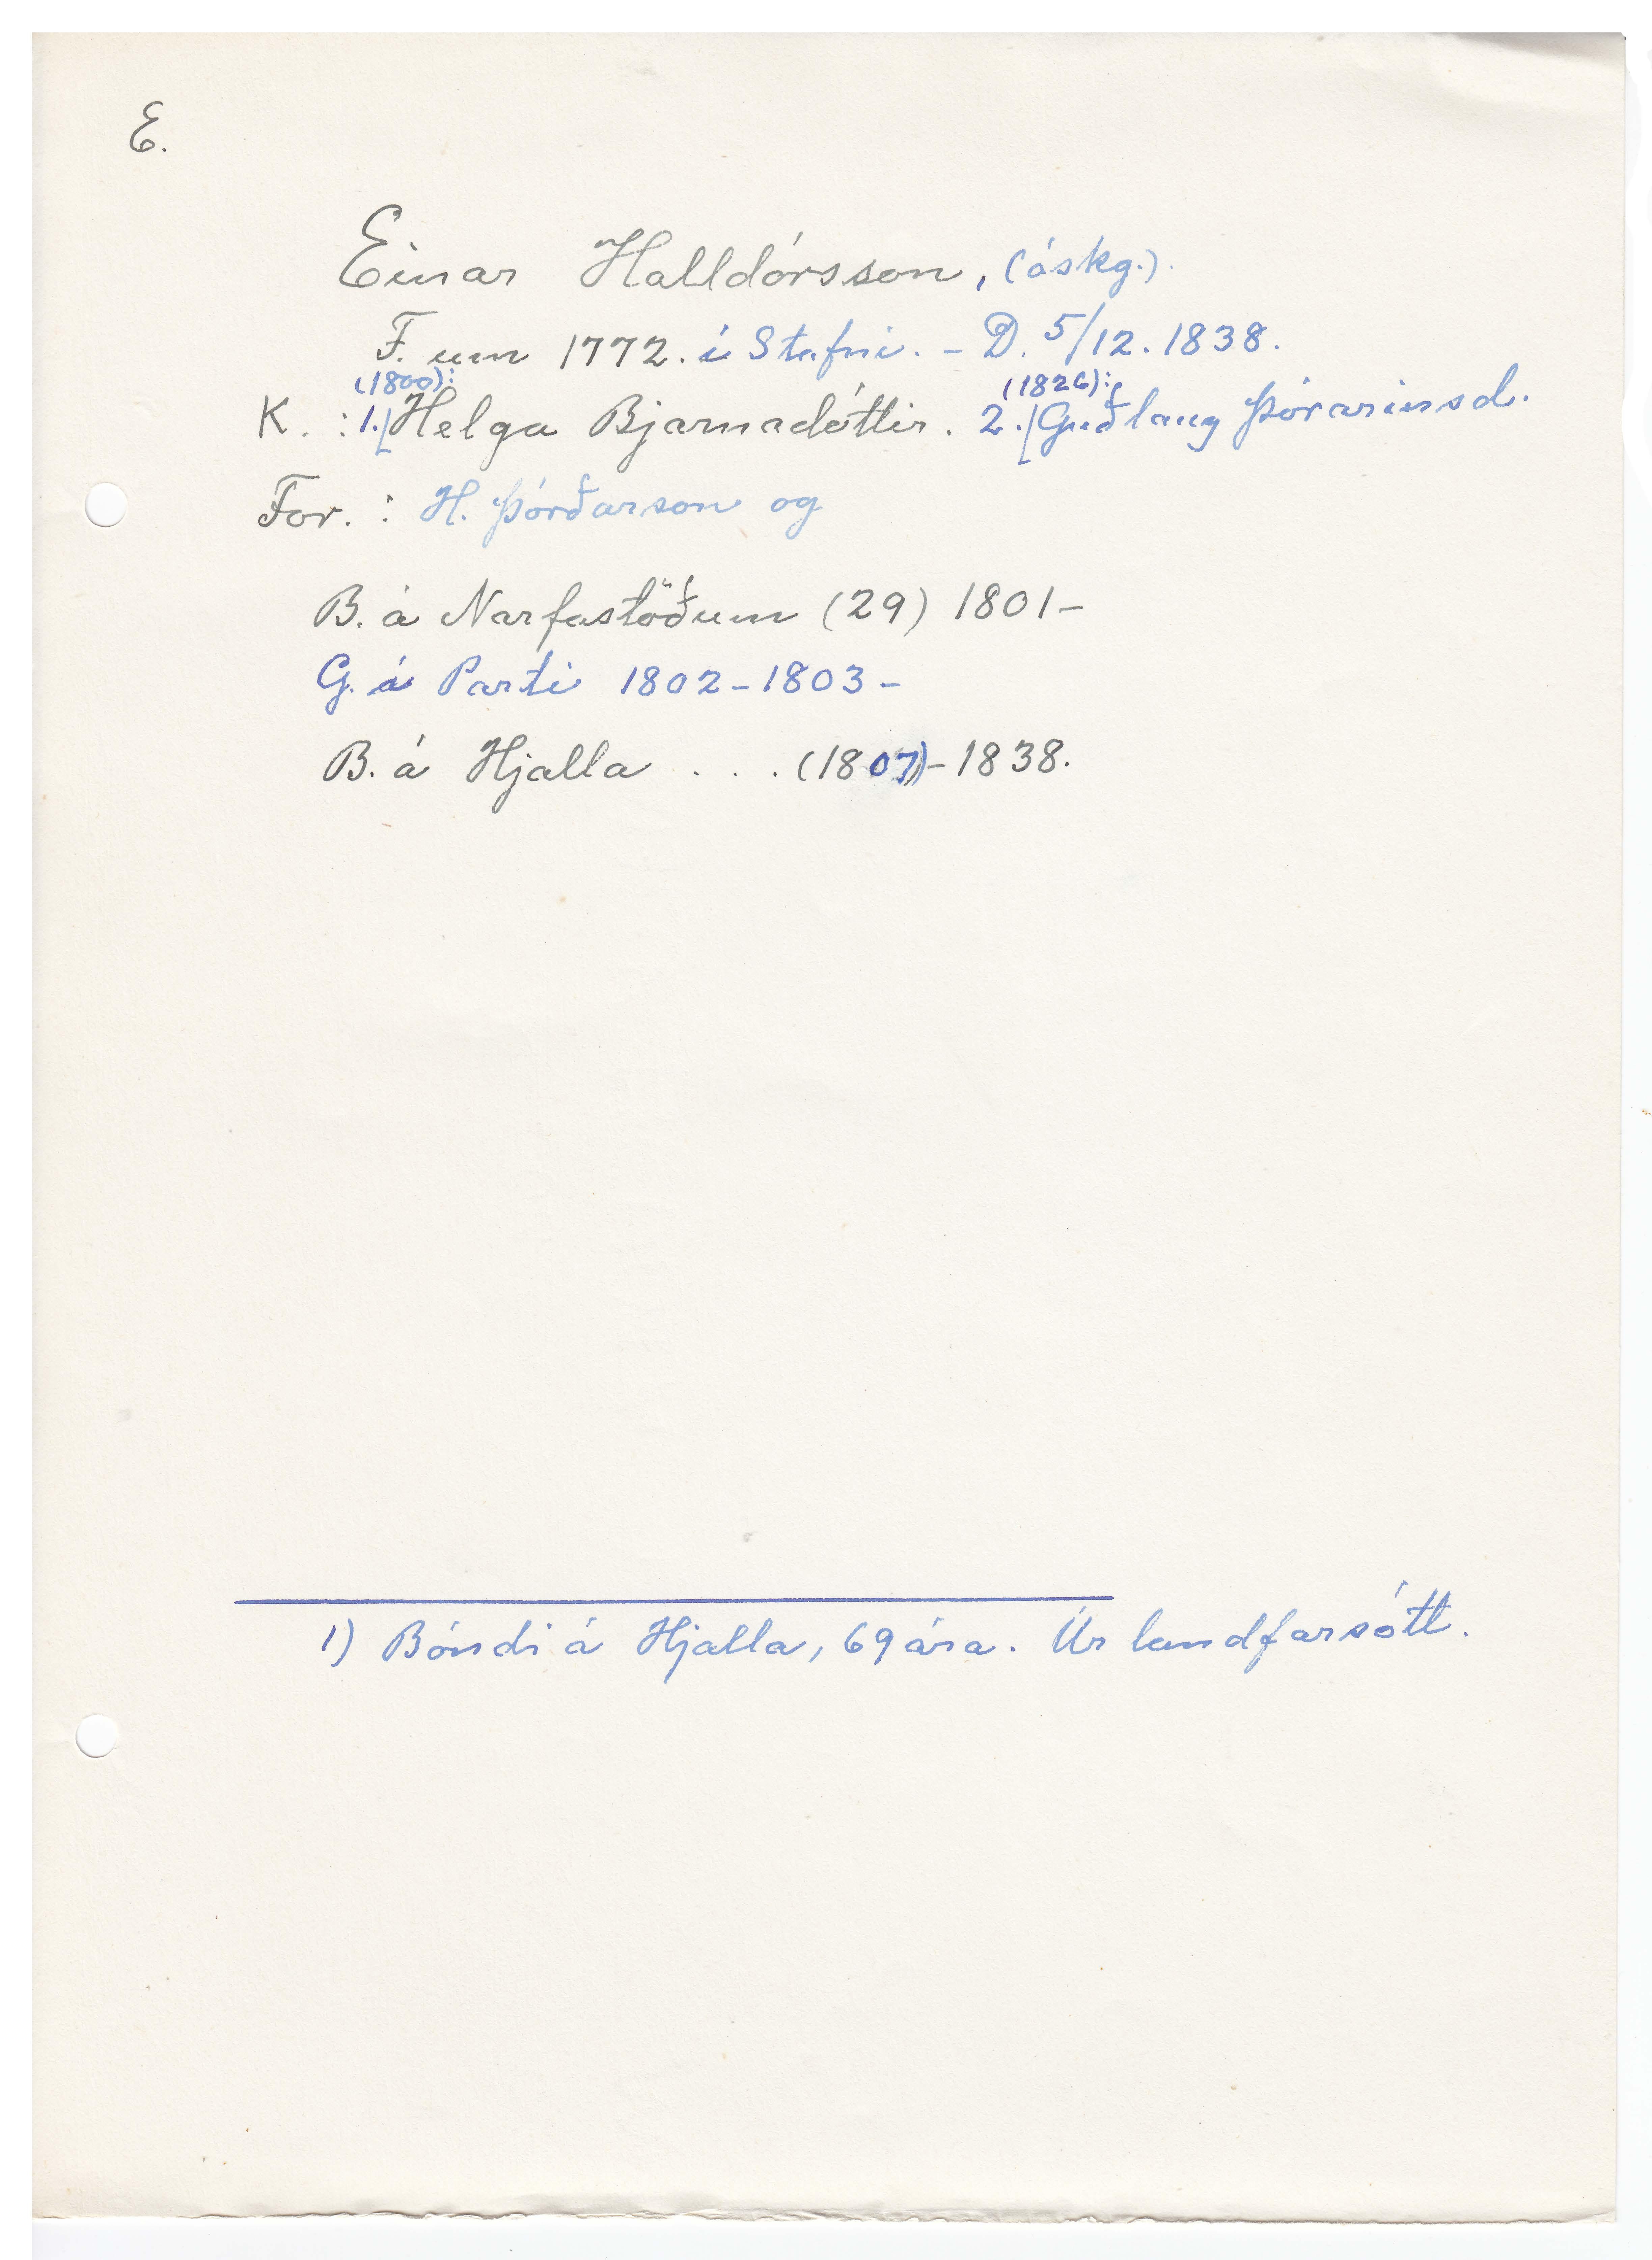 E.
Einar Halldórsson, (áskg.).
F. um 1772. í Stafni. - D. 5/12. 1838.
(1800): (1826):
K. : 1. Helga Bjarnadóttir. 2. Guðlaug Þórarinsd.
For. : H. Þórðarson og
B. á Narfastöðum (29) 1801-
G. á Parti 1802-1803-
B. á Hjalla . . . (1807)-1838.
1) Bóndi á Hjalla, 69 ára. Úr landfarsótt.